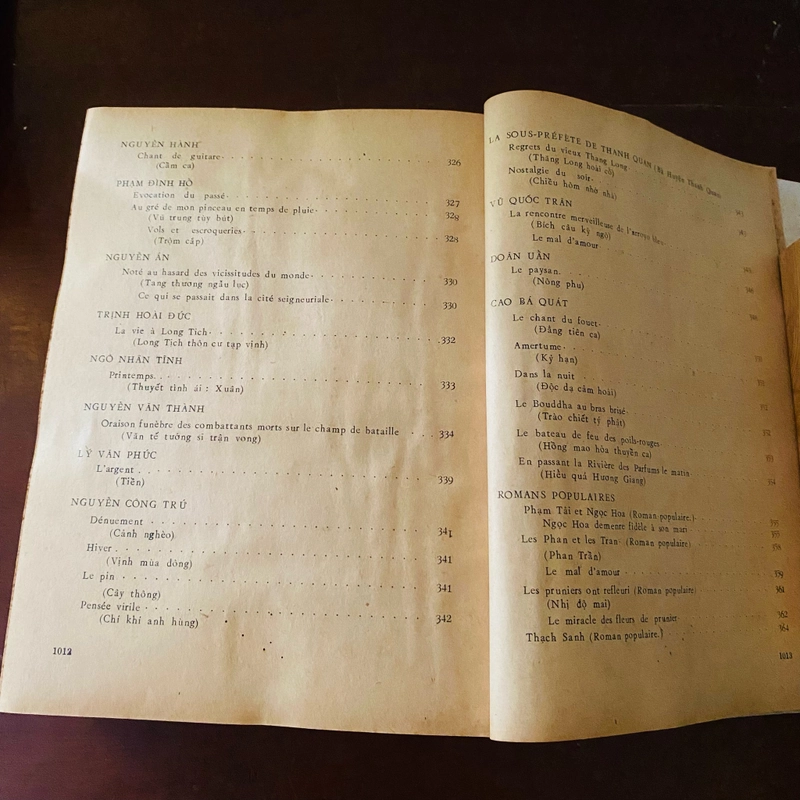 NGUYỄN HÀNH
Chant de guitare 326
(Cầm ca)
PHẠM ĐÌNH HỒ
Evocation du passé 327
Au gré de mon pinceau en temps de pluie 328
(Vũ trung tùy bút)
Vols et escroqueries 328
(Trộm cắp)
NGUYỄN ÁN
Noté au hasard des vicissitudes du monde 330
(Tang thương ngẫu lục)
Ce qui se passait dans la cité seigneuriale 330
TRỊNH HOÀI ĐỨC
La vie à Long Tích 332
(Long Tích thôn cư tạp vịnh)
NGÔ NHÂN TĨNH
Printemps 333
(Thuyết tình ái : Xuân)
NGUYỄN VĂN THÀNH
Oraison funèbre des combattants morts sur le champ de bataille 334
(Văn tế tướng sĩ trận vong)
LÝ VĂN PHỨC
L'argent 339
(Tiền)
NGUYỄN CÔNG TRỨ
Dénuement 341
(Cảnh nghèo)
Hiver 341
(Vịnh mùa đông)
Le pin 341
(Cây thông)
Pensée virile 342
(Chí khí anh hùng)
1012
LA SOUS-PRÉFÈTE DE THANH QUAN (Bà Huyện Thanh Quan)
Regrets du vieux Thang Long
(Thăng Long hoài cổ)
Nostalgie du soir
(Chiều hôm nhớ nhà)
VŨ QUỐC TRÂN
La rencontre merveilleuse de
(Bích câu kỳ ngộ)
Le mal d'amour
DOÃN UẨN
Le paysan
(Nông phu)
CAO BÁ QUÁT
Le chant du fouet
(Đằng tiên ca)
Amertume
(Ký hận)
Dans la nuit
(Độc dạ cảm hoài)
Le Bouddha au bras brisé
(Trào chiết tý phật)
Le bateau de feu des poils-rouges
(Hồng mao hỏa thuyền ca)
En passant la Rivière des Parfums le matin
(Hiểu quá Hương Giang)
ROMANS POPULAIRES
Phạm Tải et Ngọc Hoa (Roman populaire.)
Ngọc Hoa demeure fidèle à son mari
Les Phan et les Tran (Roman populaire)
(Phan Trần)
Le mal d'amour 359
Les pruniers ont refleuri (Roman populaire) 361
(Nhị độ mai)
Le miracle des fleurs de prunier 362
Thạch Sanh (Roman populaire.) 364
1013